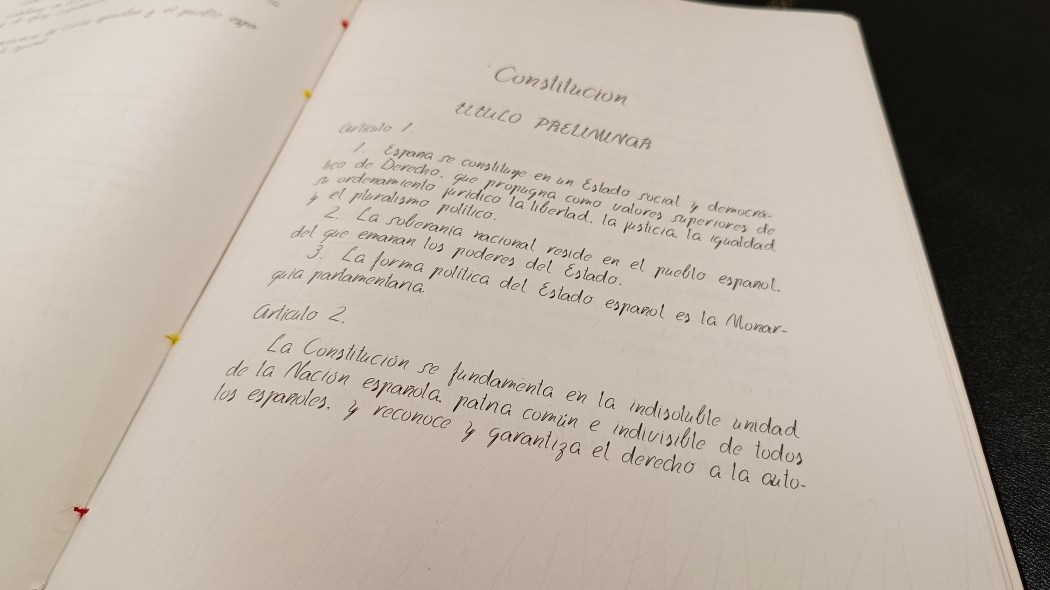 Constitución
TITULO PRELIMINAR
Artículo 1.
1. España se constituye en un Estado social y democrá-
tico de Derecho, que propugna como valores superiores de
su ordenamiento jurídico la libertad, la justicia, la igualdad
y el pluralismo político.
2. La soberanía nacional reside en el pueblo español,
del que emanan los poderes del Estado.
3. La forma política del Estado español es la Monar-
quía parlamentaria.
Artículo 2.
La Constitución se fundamenta en la indisoluble unidad
de la Nación española, patria común e indivisible de todos
los españoles, y reconoce y garantiza el derecho a la auto-